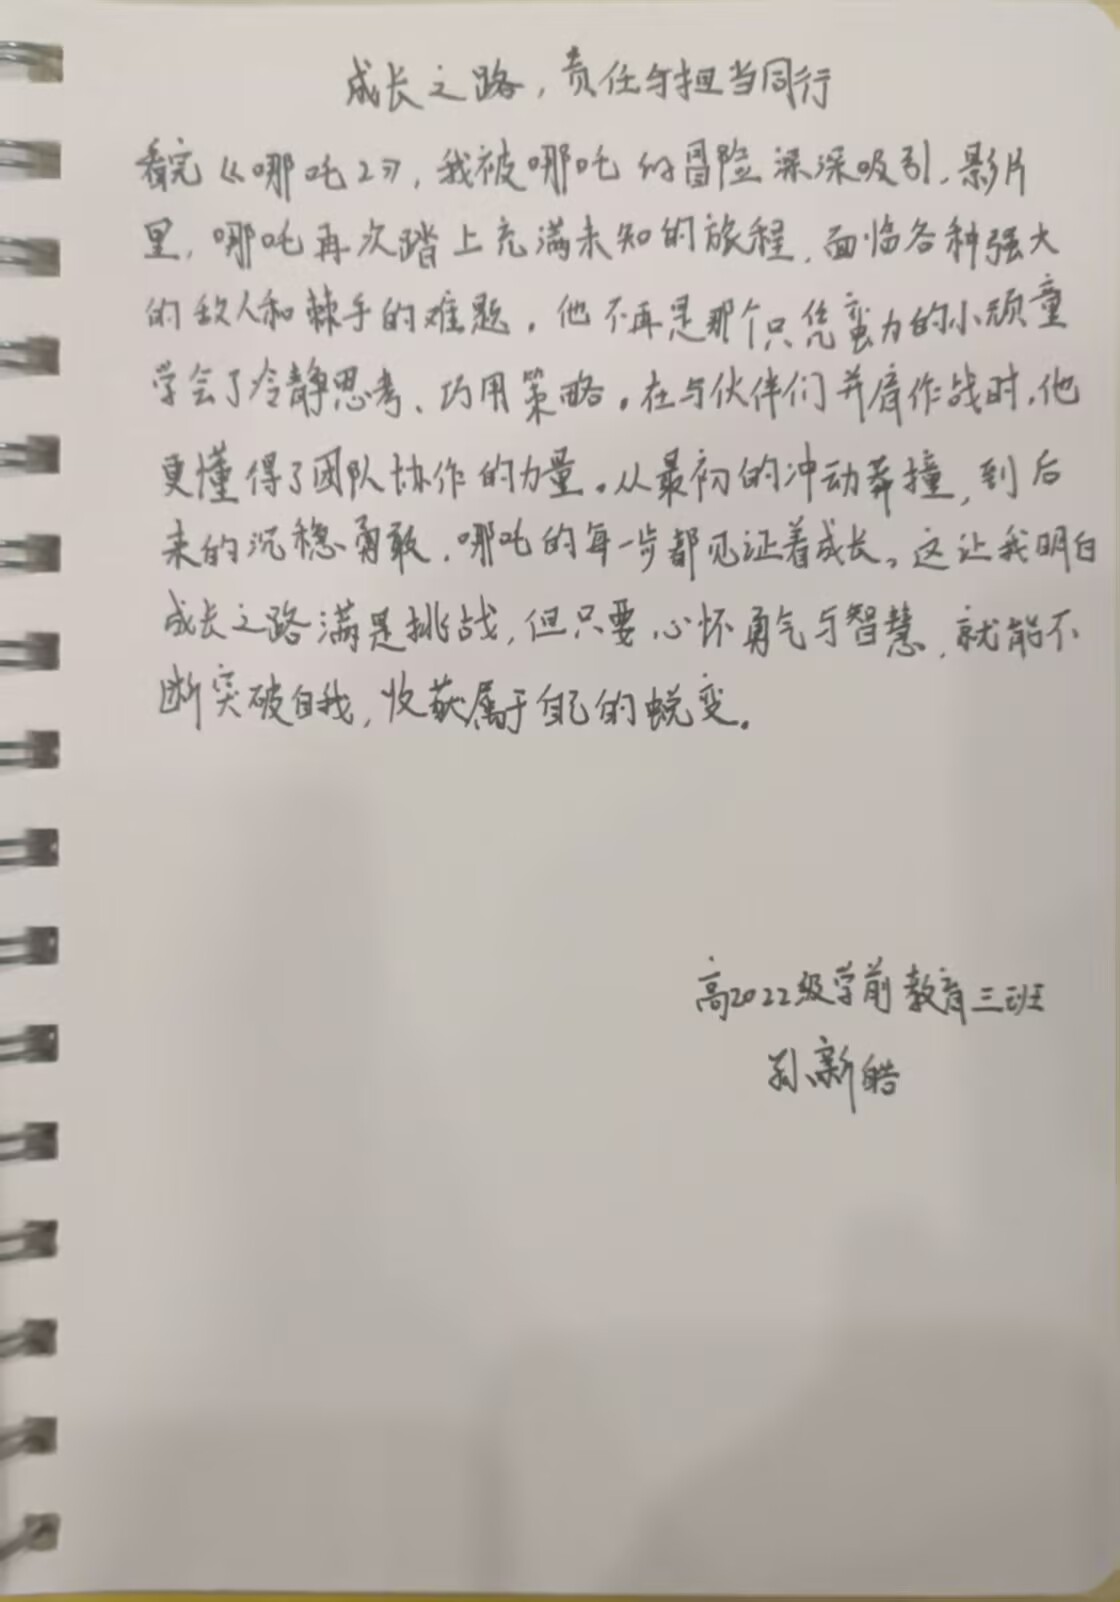 成长之路，责任与担当同行
看完《哪吒2》，我被哪吒的冒险深深吸引，影片
里，哪吒再次踏上充满未知的旅程，面临各种强大
的敌人和棘手的难题。他不再是那个只凭蛮力的小顽童
学会了冷静思考、巧用策略。在与伙伴们并肩作战时，他
更懂得了团队协作的力量。从最初的冲动莽撞，到后
来的沉稳勇敢，哪吒的每一步都见证着成长。这让我明白
成长之路满是挑战，但只要心怀勇气与智慧，就能不
断突破自我，收获属于自己的蜕变。
高2022级学前教育三班
孙新皓